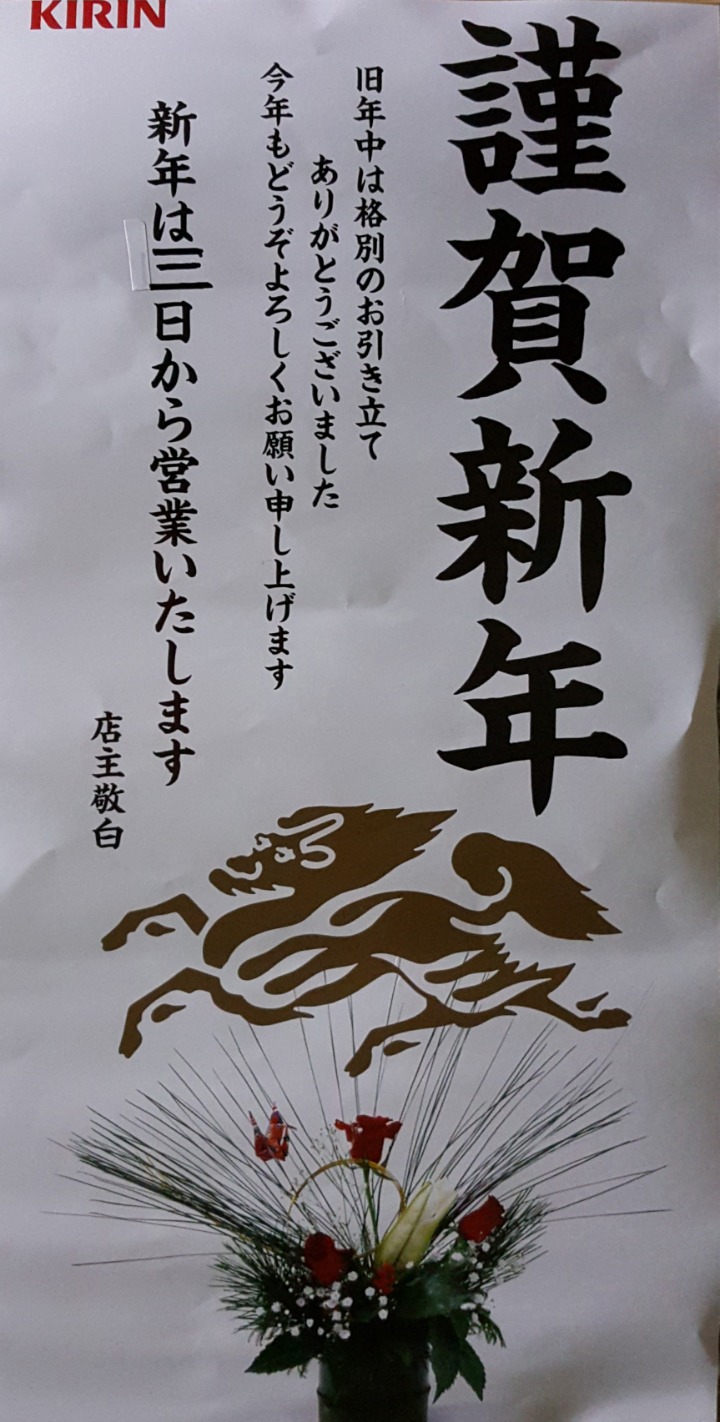 KIRIN
謹賀新年
旧年中は格別のお引き立て
ありがとうございました
今年もどうぞよろしくお願い申し上げます
新年は三日から営業いたします
店主敬白